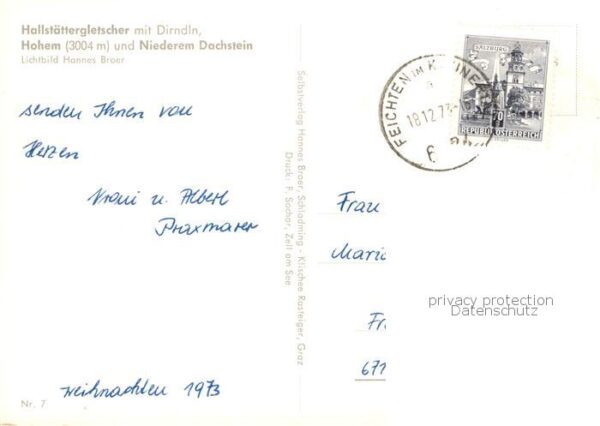 Hallstättergletscher mit Dirndln,
Hohem (3004 m) und Niederem Dachstein
Lichtbild Hannes Broer
senden Ihnen von
Herzen
Vroni u. Albert
Praxmarer
weihnachten 1973
Nr. 7
Selbstverlag Hannes Broer, Schladming - Klischee Rasteiger, Graz
Druck: P. Sochor, Zell am See
FEICHTEN IM
18.12.73
SALZBURG
70
REPUBLIK ÖSTERREICH
Frau
Maria
Fr
671
privacy protection
Datenschutz